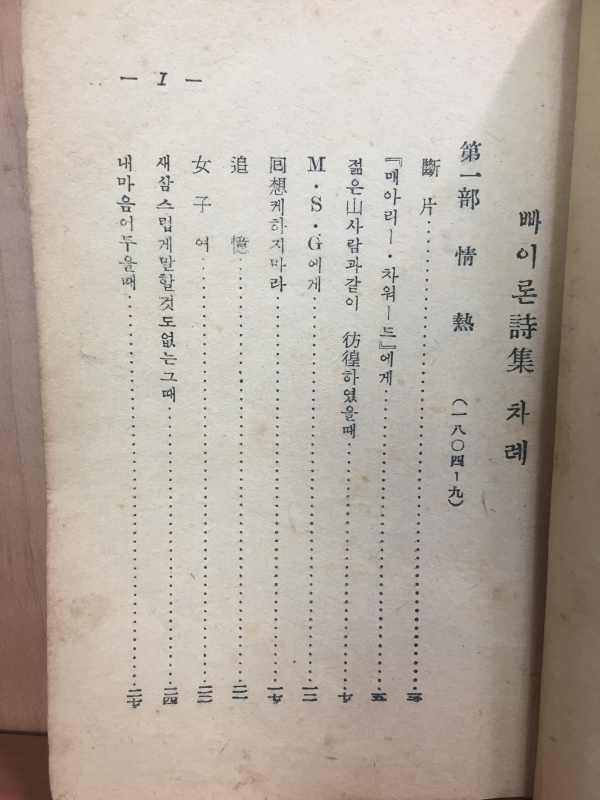 빠이론詩集 차례
第一部 情熱 (一八〇四–九)
斷片……三
『매아리ー・차워ー드』에게……五
젊은山사람과같이 彷徨하였을때……九
M・S・G에게……一二
回想케하지마라……一九
追憶……二一
女子여……二二
새삼스럽게말할것도없는그때……二四
내마음어두울때……二七
— I —